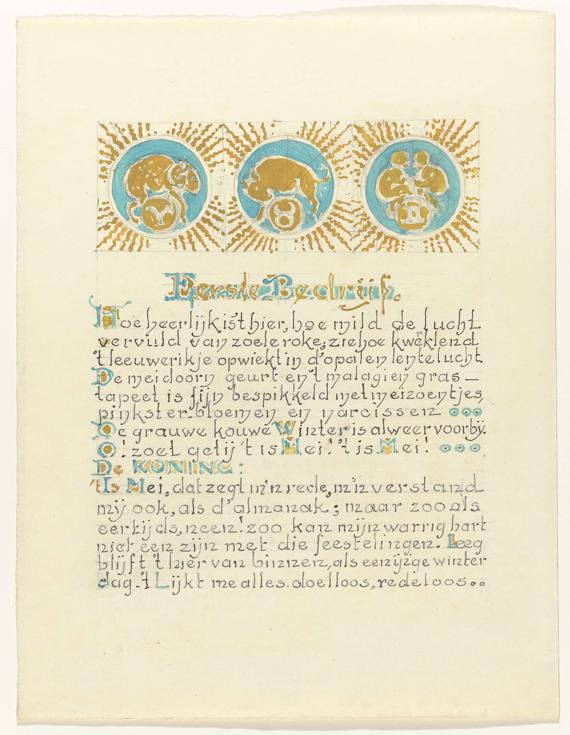 Eerste Bedrijf.
Hoe heerlijk is't hier, hoe mild de lucht
vervuld van zoele roke; zie hoe kweklend
't leeuwerikje opwiekt in d'opalen lentelucht
De meidoorn geurt en 't malagien gras –
tapeet is fijn bespikkeld met meizoentjes,
pinksterbloemen en narcissen ooo
De grauwe kouwe Winter is alweer voorbij.
O. zoet getij 't is Mei! 't is Mei! ooo
De KONING:
't Is Mei, dat zegt m'n rede, m'n verstand
mij ook, als d'almanak; maar zooals
eertijds, neen! zoo kan mijn warrig hart
niet een zijn met die feestelingen. Leeg
blijft 't hier van binnen, als een ijzige winter
dag. 't Lijkt me alles doelloos, redeloos..